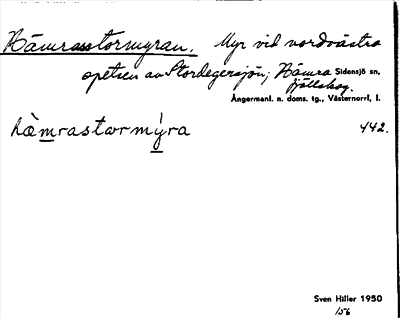 Hämrasstormyran. Myr vid nordvästra
spetsen av Stordegersjön; Hämra Sidensjö sn,
fjällskog.
Ångermanl. n. doms. tg., Västernorrl. l.
hὰmrastormýra 442.
Sven Hiller 1950
156